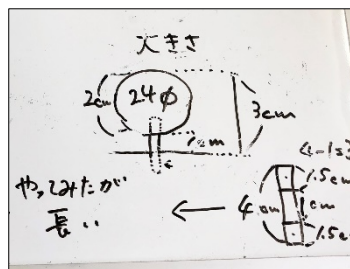 大きさ
2cm
24φ
3cm
やってみたが
長い
4cm
1.5cm
1cm